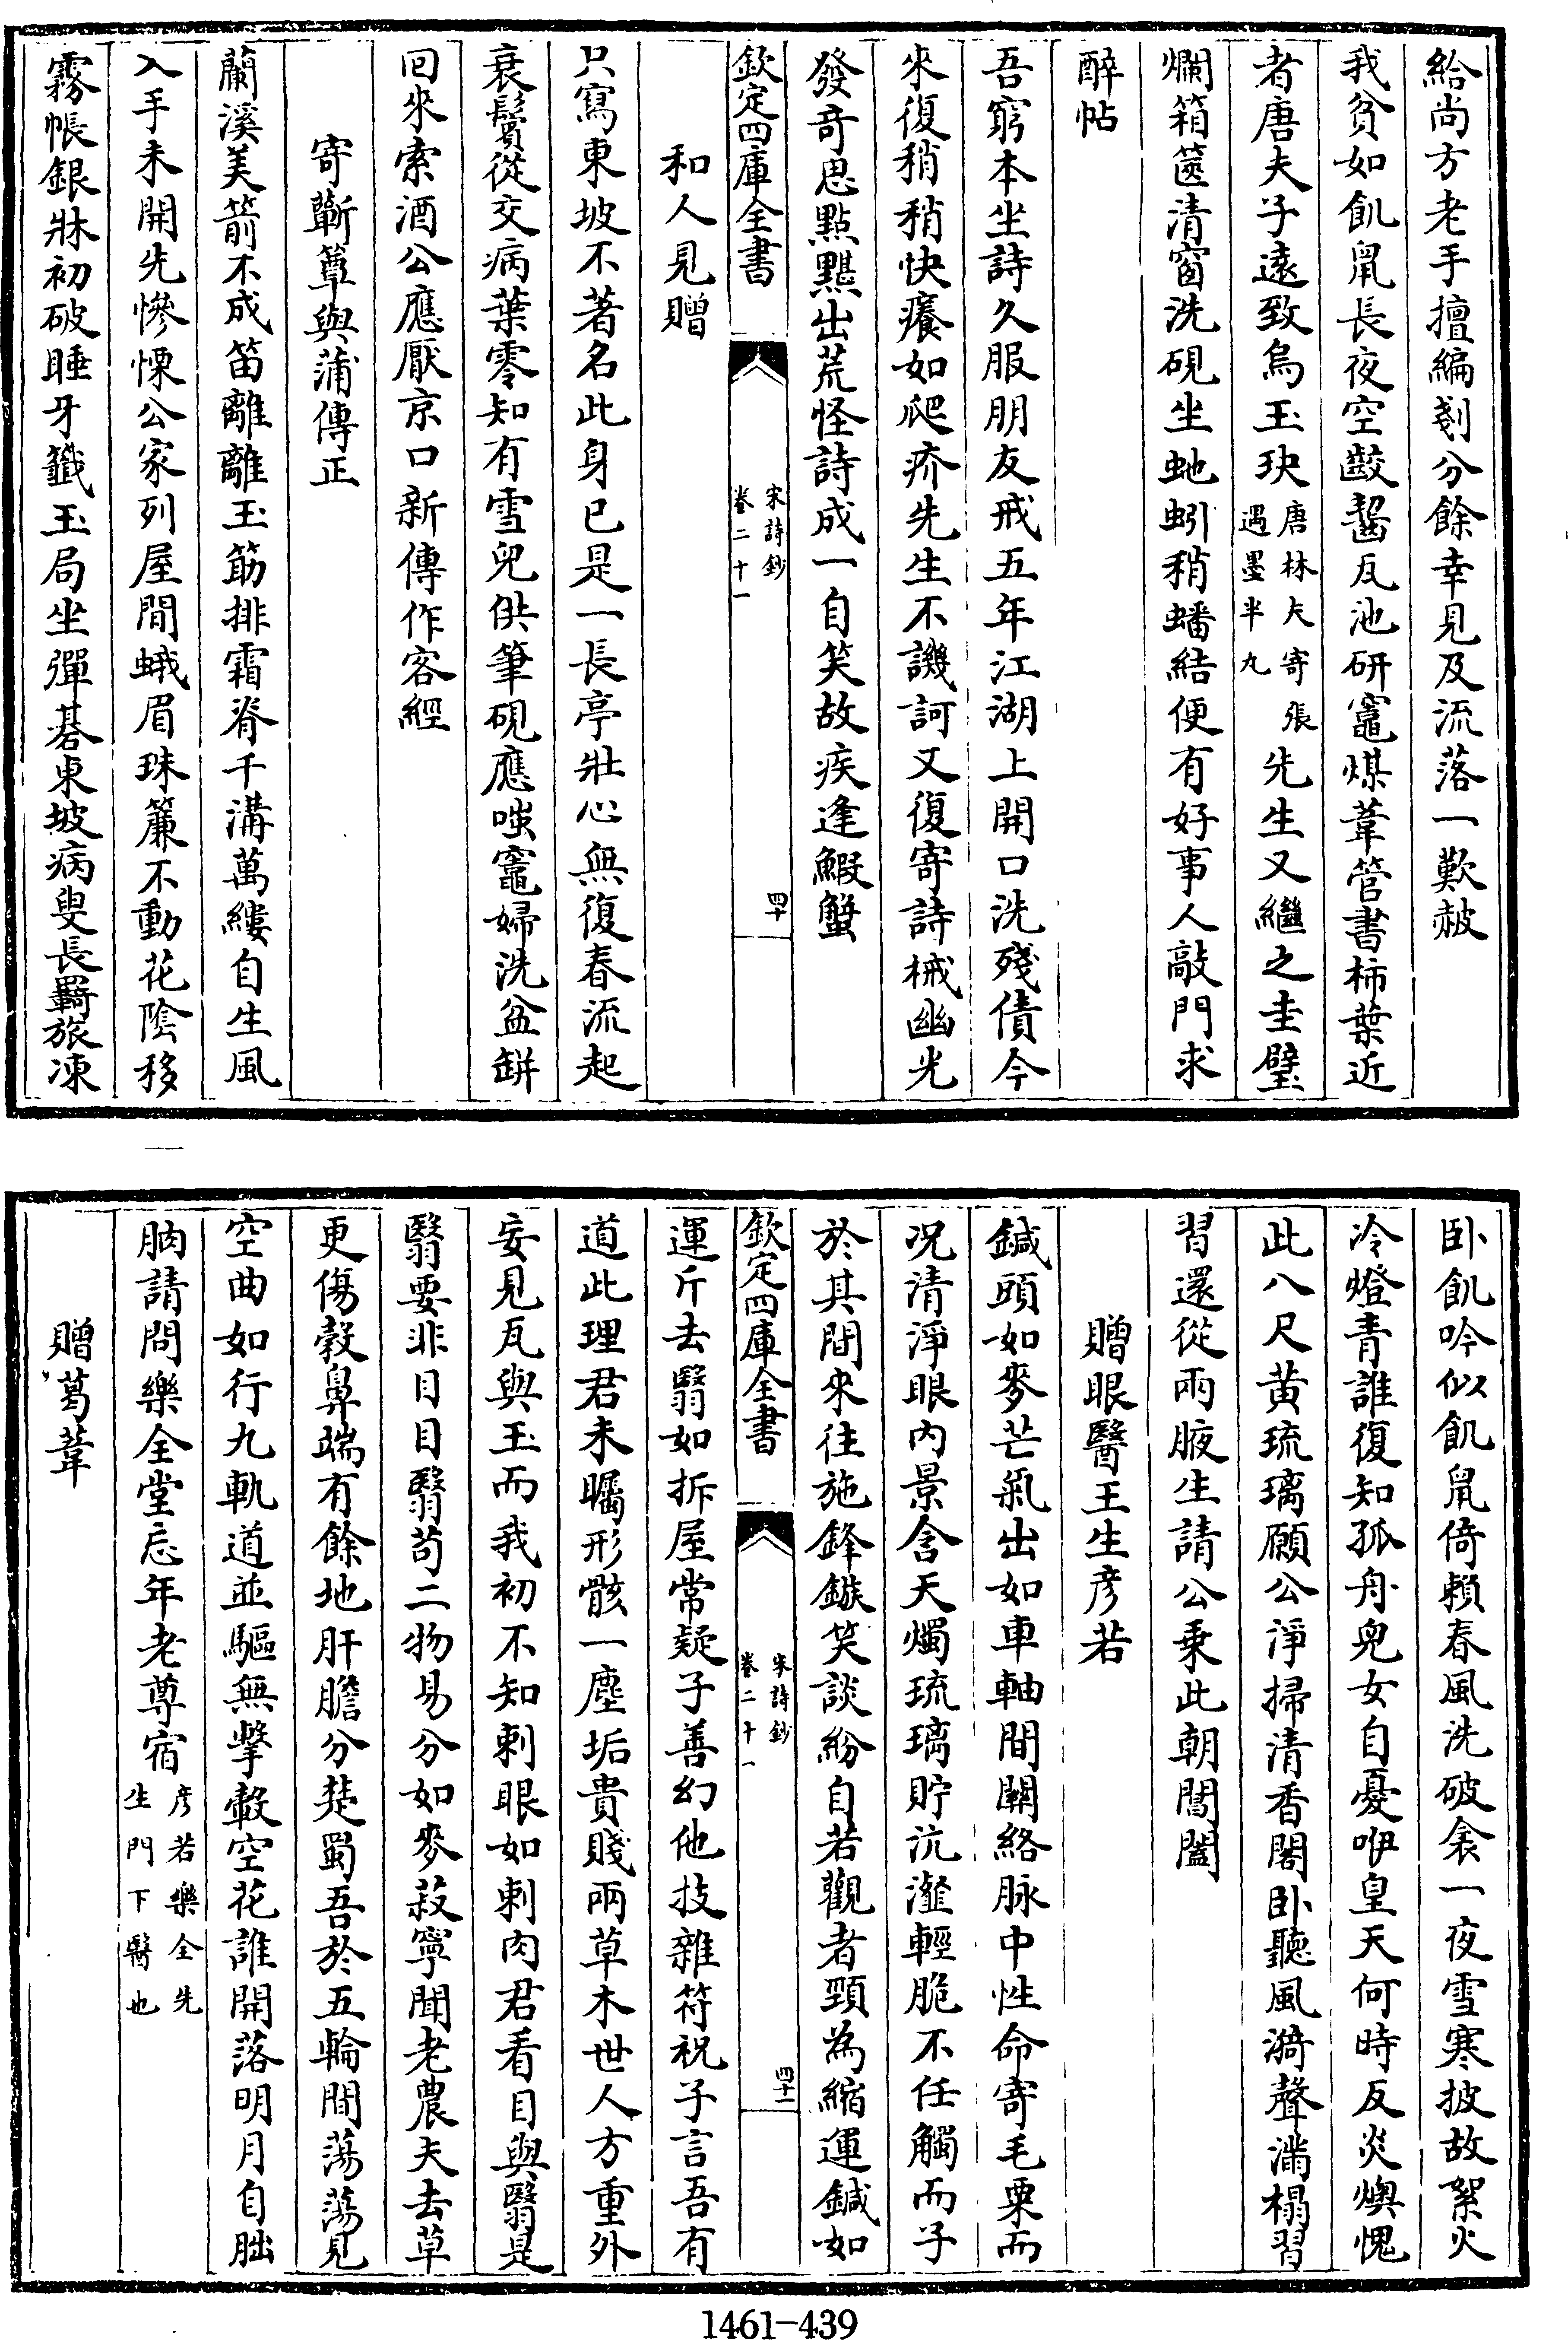 給尚方老手擅編劃分餘幸見及流落一歎赧
我貧如飢鼠長夜空齩齧瓦池研竈煤葦管書柿葉近
者唐夫子遠致烏玉玦唐林夫寄張遇墨半丸先生又繼之圭璧
爛箱篋清窗洗硯坐虵蚓稍蟠結便有好事人敲門求
醉帖
吾窮本坐詩久服朋友戒五年江湖上開口洗殘債今
來復稍稍快癢如爬疥先生不譏訶又復寄詩械幽光
發奇思點黮出荒怪詩成一自笑故疾逢鰕蟹
欽定四庫全書
宋詩鈔
卷二十一
四十
和人見贈
只寫東坡不著名此身已是一長亭壯心無復春流起
衰鬢從交病葉零知有雪兒供筆硯應嗤竈婦洗盆缾
回來索酒公應厭京口新傳作客經
寄蘄簟與蒲傳正
蘭溪美箭不成笛離離玉筯排霜脊千溝萬縷自生風
入手未開先慘慄公家列屋間蛾眉珠簾不動花陰移
霧帳銀牀初破睡牙籤玉局坐彈棊東坡病叟長羇旅凍
卧飢吟似飢鼠倚賴春風洗破衾一夜雪寒披故絮火
冷燈青誰復知孤舟兒女自憂咿皇天何時反炎燠愧
此八尺黄琉璃願公淨掃清香閣卧聽風漪聲滿榻習
習還從兩腋生請公乗此朝閶闔
贈眼醫王生彦若
鍼頭如麥芒氣出如車軸間關絡脉中性命寄毛粟而
况清淨眼内景含天燭琉璃貯沆瀣輕脆不任觸而子
於其間來往施鋒鏃笑談紛自若觀者頸為縮運鍼如
欽定四庫全書
宋詩鈔
卷二十一
四十一
運斤去翳如拆屋常疑子善幻他技雜符祝子言吾有
道此理君未矚形骸一塵垢貴賤兩草木世人方重外
妄見瓦與玉而我初不知刺眼如刺肉君看目與翳是
翳要非目目翳苟二物易分如麥菽寧聞老農夫去草
更傷穀鼻端有餘地肝膽分楚蜀吾於五輪間蕩蕩見
空曲如行九軌道並驅無擊轂空花誰開落明月自朏
朒請問樂全堂忘年老尊宿彦若樂全先生門下醫也
贈葛葦
1461-439